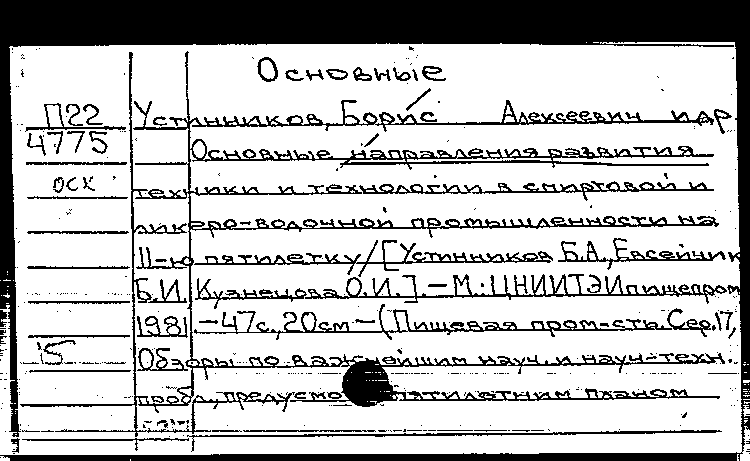 Основные
П22 Устинников, Борис Алексеевич и др.
4775 Основные направления развития
оск техники и технологии в спиртовой и
ликеро-водочной промышленности на
11-ю пятилетку/[Устинников Б.А., Евсейчик
Б.И. Кузнецова О.И.].-М.:ЦНИИТЭИпищепром
1981.-47с., 20см-(Пищевая пром-сть. Сер.17,
15 Обзоры по важнейшим науч. и науч-техн.
пробл., предусмо пятилетним планом